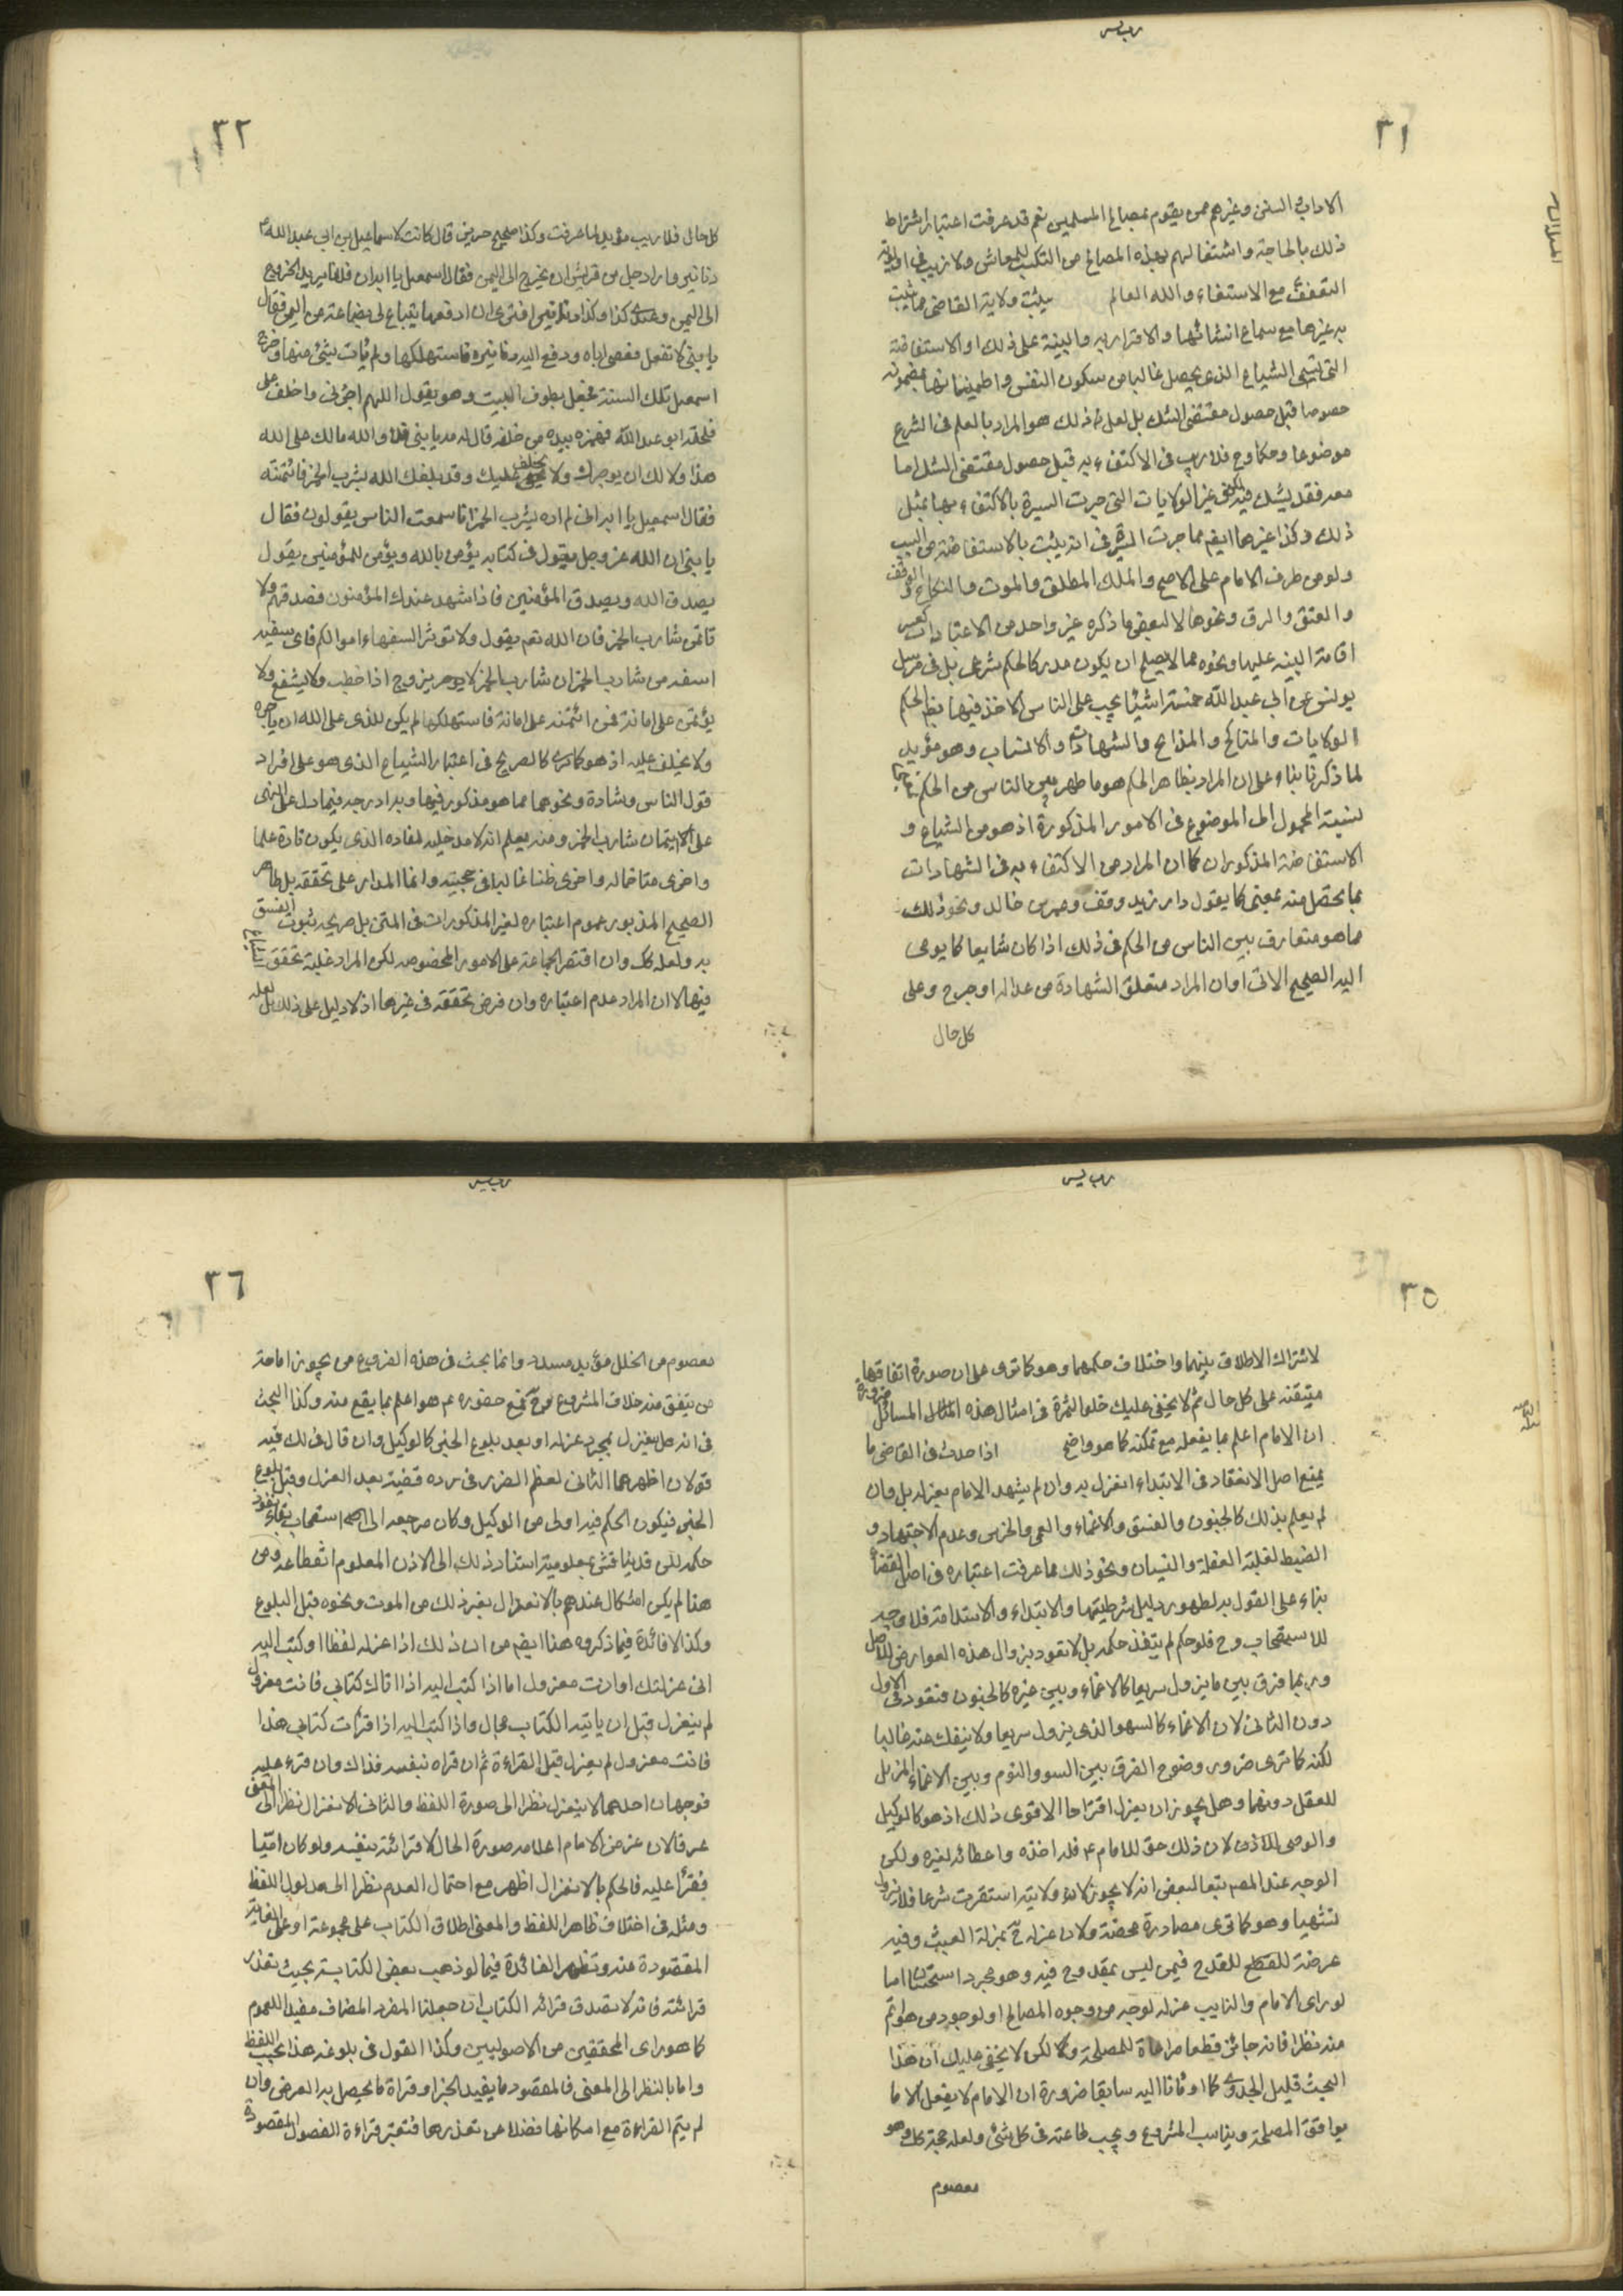 ٣١
الاداب والسنن وغيرهم ممن يقوم بمصالح المسلمين نعم قد عرفت اعتبار اشتراط
ذلك بالحاجة واشتغالهم بهذه المصالح من التكسب للمعاش ولا ريب في اولوية
التعفف مع الاستغناء والله العالم يثبت ولاية القاضي مما يثبت
به غيرها مع سماع انشائها والاقرار به والبينة على ذلك او الاستفاضة
التي تسمى الشياع الذي يحصل غالبا من سكون النفس واطمينانها بمضمونه
خصوصا قبل حصول مقتضى الشك بل لعل ذلك هو المراد بالعلم في الشرع
موضوعا وحكما وح فلا ريب في الاكتفاء به قبل حصول مقتضى الشك اما
معه فقد يشك فيه لكن في غير الولايات التي جرت السيرة بالاكتفاء بها بمثل
ذلك وكذا غيرها ايضم مما جرت السيرة في انه يثبت بالاستفاضة من النسب
ولو من طرف الامام على الاصح والملك المطلق والموت والنكاح والوقف
والعتق والرق ونحوها لا لبعض ما ذكره غير واحد من الاعتبارات كعسر
اقامة البينة عليها ونحوه مما لا يصلح ان يكون مدركا لحكم شرعي بل في مرسل
يونس عن ابي عبد الله خمسة اشياء يجب على الناس الاخذ فيها بظاهر الحكم
الولايات والمناكح والذبايح والشهادات والانساب وهو مؤيد
لما ذكرنا بناء على ان المراد بظاهر الحكم هو ما ظهر بين الناس من الحكم
بنسبة المحمول الى الموضوع في الامور المذكورة اذ هو من الشياع و
الاستفاضة المذكوران كما ان المراد من الاكتفاء به في الشهادات
بما يحصل منه بمعنى كما يقول دار زيد وقف وعمر بن خالد ونحو ذلك
مما هو متعارف بين الناس من الحكم في ذلك اذا كان شايعا كما يومى
اليه الصحيح الاتي او ان المراد متعلق الشهادة من عدالة او جرح وعلى
كل حال
٣٢
كل حال فلا ريب مؤيد لما عرفت وكذا صحيح حريز قال كانت لاسماعيل بن ابي عبد الله ع
دنانير واراد رجل من قريش ان يخرج الى اليمن فقال اسمعيل يا ابه ان فلانا يريد الخروج
الى اليمن وعندي كذا وكذا دنانير افترى ان ادفعها يبتاع لي بضاعة من اليمن فقال
يا بني لا تفعل فعصى اباه ودفع اليه دنانيره فاستهلكها ولم يأت بشئ منها وخرج
اسمعيل تلك السنة فجعل يطوف البيت وهو يقول اللهم اجرني واخلف علي
فلحقه ابو عبد الله فهمزه بيده من خلفه قال له مه يا بني فلا والله مالك على الله
هذا ولا لك ان يوجرك ولا يخلف عليك وقد بلغك انه يشرب الخمر فائتمنته
فقال اسمعيل يا ابه اني لم اره يشرب الخمر انا سمعت الناس يقولون فقال
يا بني ان الله عز وجل يقول في كتابه يؤمن بالله ويؤمن للمؤمنين يقول
يصدق الله ويصدق المؤمنين فاذا شهد عندك المؤمنون فصدقهم ولا
تاتمن شارب الخمر فان الله تعم يقول ولا تؤتوا السفهاء اموالكم فاي سفيه
اسفه من شارب الخمر ان شارب الخمر لا يزوج اذا خطب ولا يشفع ولا
يؤتمن على امانة فمن ائتمنه على امانة فاستهلكها لم يكن للذي على الله ان ياجره
ولا يخلف عليه اذ هو كما ترى كالصريح في اعتبار الشياع الذي هو على افراد
قول الناس وشهادة ونحوهما مما هو مذكور فيها
على الايتمان شارب الخمر ومنه يعلم انه لا مدخلية لمفاده الذي يكون تارة علما
واخرى متاخماله واخرى ظنا غالبا في حجيته وانما المدار على تحققه بل ظاهر
الصحيح المذبور عموم اعتباره لغير المذكورات في المتن بل صريحه ثبوت الفسق
به ولعله كك وان اقتصر الجماعة على الامور المخصوصة لكن المراد غلبة تحقق الشياع
فيها لا ان المراد عدم اعتباره وان فرض تحققه في غيرها اذ لا دليل على ذلك بل لعله
٣٥
لاشتراك الاطلاق بينهما واختلاف حكمهما وهو كما ترى على ان صورة اتفاقها
متيقنه على كل حال ثم لا يخفى عليك خلو الثمرة في امثال هذه المسائل ضرورة
ان الامام اعلم بما يفعله مع تمكنه كما هو واضح اذا حدث في القاضي ما
يمنع اصل الانعقاد في الابتداء انعزل به وان لم يشهد الامام بعزله بل وان
لم يعلم بذلك كالجنون والفسق والاغماء والعمى والخرس وعدم الاجتهاد و
الضبط لغلبة الغفلة والنسيان ونحو ذلك مما عرفت اعتباره في اصل القضاء
بناء على القول به لظهور دليل شرطيتها والابتداء والاستدامة فلا وجه
للاستصحاب وح فلو حكم لم ينفذ حكمه بل لا تعود بزوال هذه العوارض للاصل
وربما فرق بين ما يزول سريعا كالاغماء وبين غيره كالجنون فتعود في الاول
دون الثاني لان الاغماء كالسهو الذي يزول سريعا ولا ينفك عنه غالبا
لكنه كما ترى ضرورة وضوح الفرق بين السهو والنوم وبين الاغماء المزيل
للعقل دونهما وهل يجوز ان يعزل اقتراحا الاقوى ذلك اذ هو كالوكيل
والوصي لان ذلك حق للامام ع فله اخذه واعطائه لغيره ولكن
الوجه عند المصم تبعا لبعض انه لا يجوز لان ولايته استقرت شرعا فلا تزول
تشهيا وهو كما ترى مصادرة محضة ولان عزله ح بمنزلة العبث وفيه
عرضة للقدح فيمن ليس بمقدوح فيه وهو مجرد استحسان اما
لو راى الامام والنايب عزله لوجه من وجوه المصالح او لوجود من هو اتم
منه نظرا فانه جائز قطعا مراعاة للمصلحة ولكن لا يخفى عليك ان هذا
البحث قليل الجدوى كما اومانا اليه سابقا ضرورة ان الامام لا يفعل الا ما
يوافق المصلحة ويناسب المشروع ويجب طاعته في كل شئ ولعله حجة كك وهو
معصوم
٣٦
معصوم من الخلل مؤيد مسدد وانما بحث في هذه الفروع من يجوز امامة
من يتفق منه خلاف المشروع وح فمع حضوره عم هو اعلم بما يقع منه وكذا البحث
في انه هل ينعزل بمجرد عزله او بعد بلوغ الخبر كالوكيل وان قال في لك فيه
قولان اظهرهما الثاني لعظم الضرر في رده قضية بعد العزل وقبل بلوغ
الخبر فيكون الحكم فيه اولى من الوكيل وكان مرجعه الى استصحاب بقاء نفوذ
حكمه لكن قد يناقش بمعلومية استناد ذلك الى الاذن المعلوم انقطاعه ومن
هنا لم يكن اشكال عندهم بالانعزال بغير ذلك من الموت ونحوه قبل البلوغ
وكذا لا فائدة فيما ذكروه هنا ايضم من ان ذلك اذا عزله لفظا او كتب اليه
اني عزلتك او انت معزول اما اذا كتب اليه اذا اتاك كتابي فانت معزول
لم ينعزل قبل ان ياتيه الكتاب بحال واذا كتب اليه اذا قرات كتابي هذا
فانت معزول لم يعزل قبل القراءة ثم ان قراه بنفسه فذاك وان قرء عليه
فوجهان احدهما لا ينعزل نظرا الى صورة اللفظ والثاني الانعزال نظرا الى المعنى
عرفا لان غرض الامام اعلامه صورة الحال لا قرائته بنفسه ولو كان اميا
فقرأ عليه فالحكم بالانعزال اظهر مع احتمال العدم نظرا الى مدلول اللفظ
ومثله في اختلاف ظاهر اللفظ والمعنى اطلاق الكتاب على مجموعة او على الغاية
المقصودة منه وتظهر الفائدة فيما لو ذهب بعض الكتابة بحيث تعذر
قرائته فانه لا يصدق قرائة الكتاب ان جعلنا المفرد المضاف مفيدا للعموم
كما هو راى المحققين من الاصوليين وكذا القول في بلوغه هذا بحسب اللفظ
واما بالنظر الى المعنى فالمقصود ما يفيد الخبر او قراة ما يحصل به الغرض وان
لم يتم القراءة مع امكانها فضلا عن تعذرها فتعتبر قراءة الفصول المقصودة